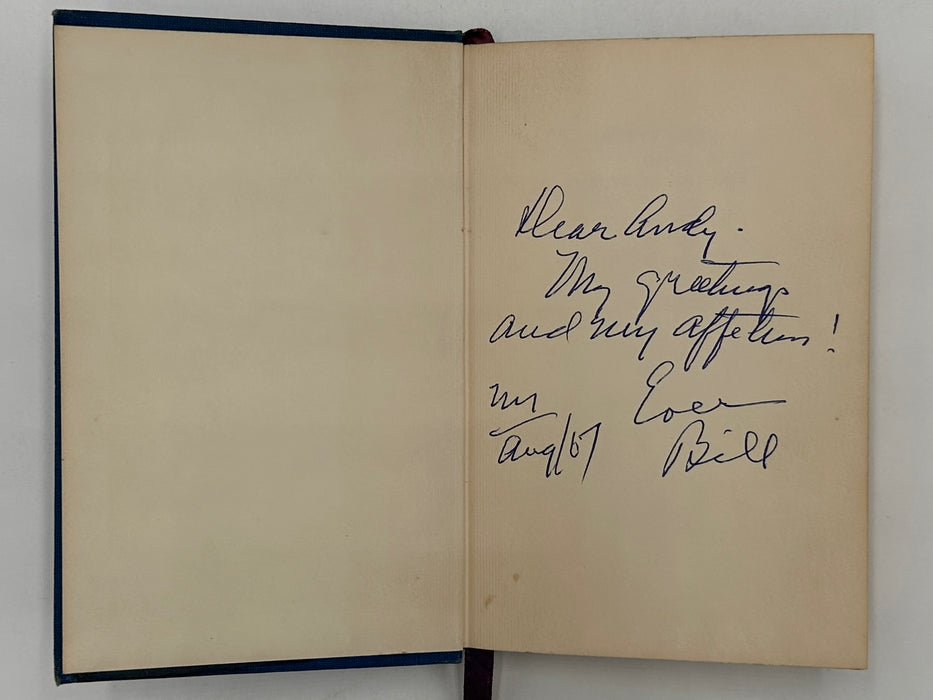 Dear Andy.
My greetings
and my affection!
Ever
Aug/67
Bill